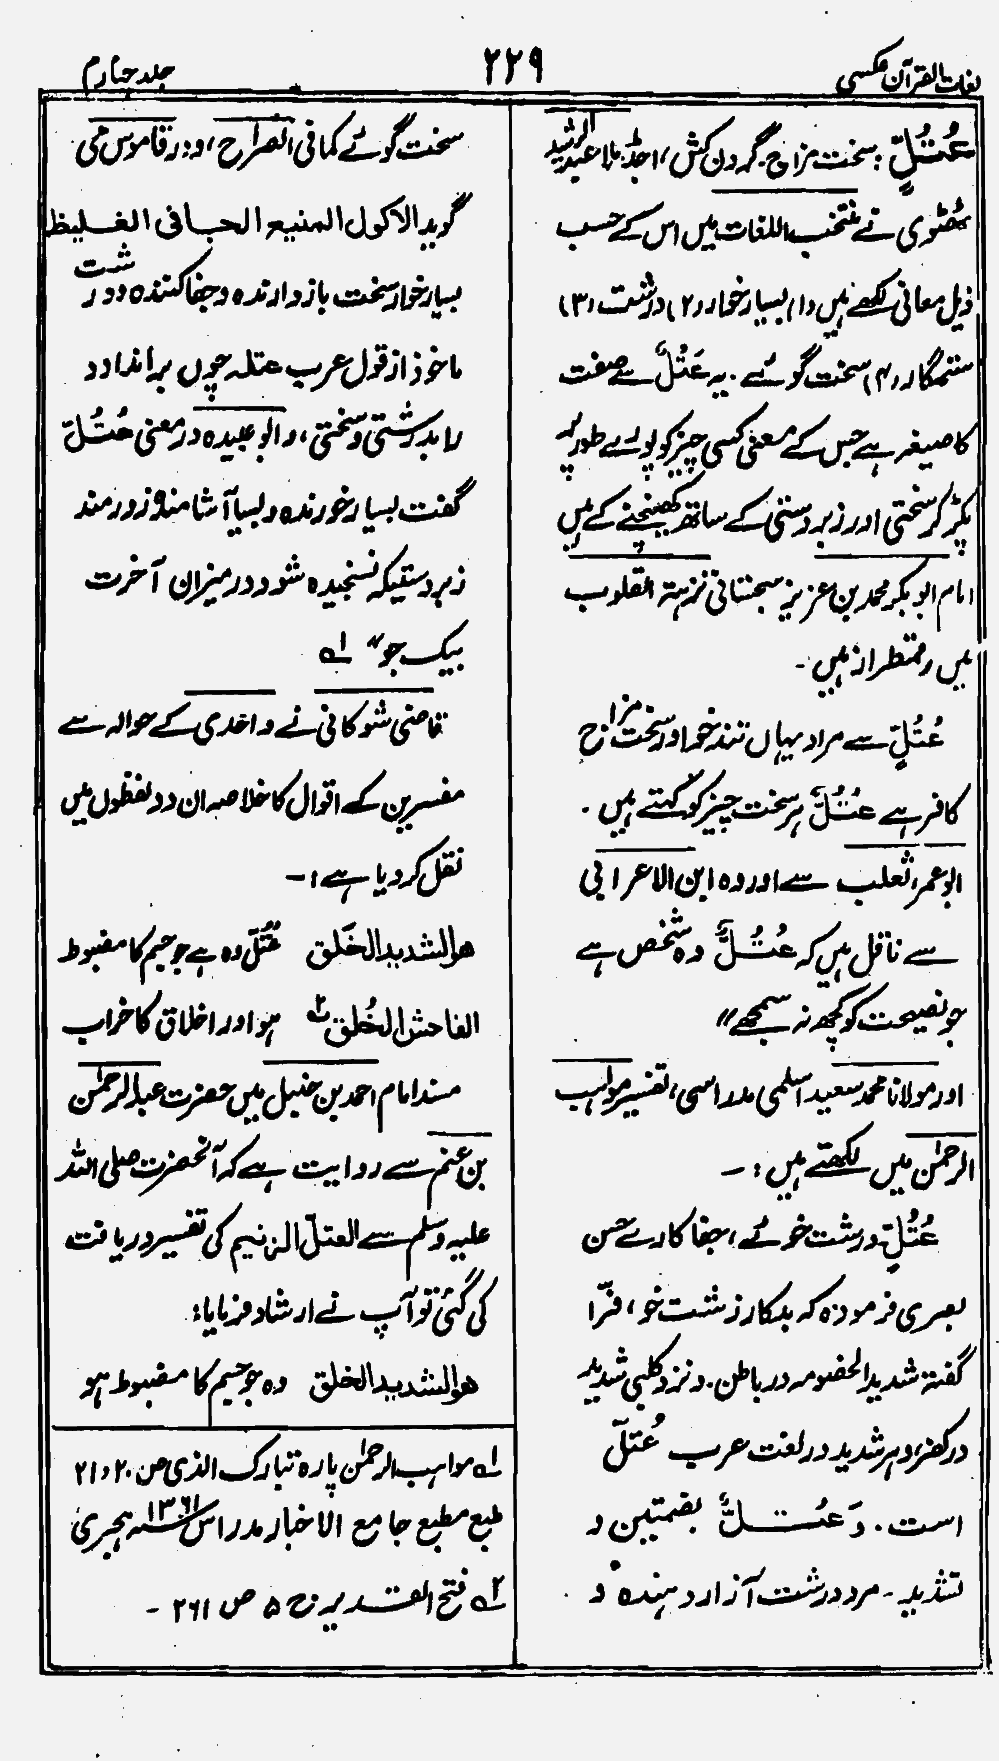 لغات القرآن عکسی
۲۲۹
جلد چہارم
عُتُلٍّ: سخت مزاج۔ گردن کش، اجڈ۔ ملا عبدالرشید
ٹھٹوی نے منتخب اللغات میں اس کے حسب
ذیل معانی لکھے ہیں (۱) بسیار خوار (۲) درشت (۳)
ستمگار (۴) سخت گوئے۔ یہ عَتْلٌ سے صفت
کا صیغہ ہے جس کے معنی کسی چیز کو پورے طور پر
پکڑ کر سختی اور زبردستی کے ساتھ کھینچنے کے ہیں
امام ابو بکر محمد بن عزیز سجستانی نزہۃ القلوب
میں رقمطراز ہیں۔
عُتُلٍّ سے مراد یہاں تند خو اور سخت مزاج
کافر ہے عُتُلٌّ ہر سخت چیز کو کہتے ہیں۔
ابو عمر، ثعلب سے اور وہ ابن الاعرابی
سے ناقل ہیں کہ عُتُلٌّ وہ شخص ہے
جو نصیحت کو کچھ نہ سمجھے"
اور مولانا محمد سعید اسلمی مدراسی، تفسیر مواہب
الرحمٰن میں لکھتے ہیں:۔
عُتُلٍّ۔ درشت خوئے، جفا کارے حسن
بصری فرمودہ کہ بدکار زشت خو، فرّا
گفتہ شدید الخصومہ در باطن۔ ونزد کلبی شدید
در کفر، وہر شدید در لغت عرب عُتلّ
است۔ وَ عُتُلٌّ بضمتین و
تشدید۔ مرد درشت آزار دہندہ و
سخت گوئے کما فی الصراح، ودر قاموس می
گوید الاکول المنیع الجافی الغلیظ
بسیار خوار سخت باز دارندہ وجفا کنندہ ودرشت
ماخوذ از قول عرب عتلہ چوں براند اورا
بدرشتی وسختی، وابو عبیدہ در معنی عُتُلّ
گفت بسیار خورندہ وبسیار آشامندہ زورمند
زبردستیکہ نسنجیدہ شود در میزان آخرت
بیک جو" لہ۱
قاضی شوکانی نے واحدی کے حوالہ سے
مفسرین کے اقوال کا خلاصہ ان دو لفظوں میں
نقل کر دیا ہے:۔
ھوالشدید الخَلق عُتُلّ وہ ہے جو جسم کا مضبوط
الفاحش الخُلق ۲ ہو اور اخلاق کا خراب
مسند امام احمد بن حنبل میں حضرت عبدالرحمٰن
بن غنم سے روایت ہے کہ آنحضرت صلی اللہ
علیہ وسلم سے العتلّ الزنیم کی تفسیر دریافت
کی گئی تو آپ نے ارشاد فرمایا:
ھوالشدید الخلق وہ جو جسم کا مضبوط ہو
لہ۱ مواہب الرحمٰن پارہ تبارک الذی ص ۲۰ و ۲۱
طبع مطبع جامع الاخبار مدراس ۱۳۶۱ ہجری
لہ۲ فتح القدیر ج ۵ ص ۲۶۱ ۔